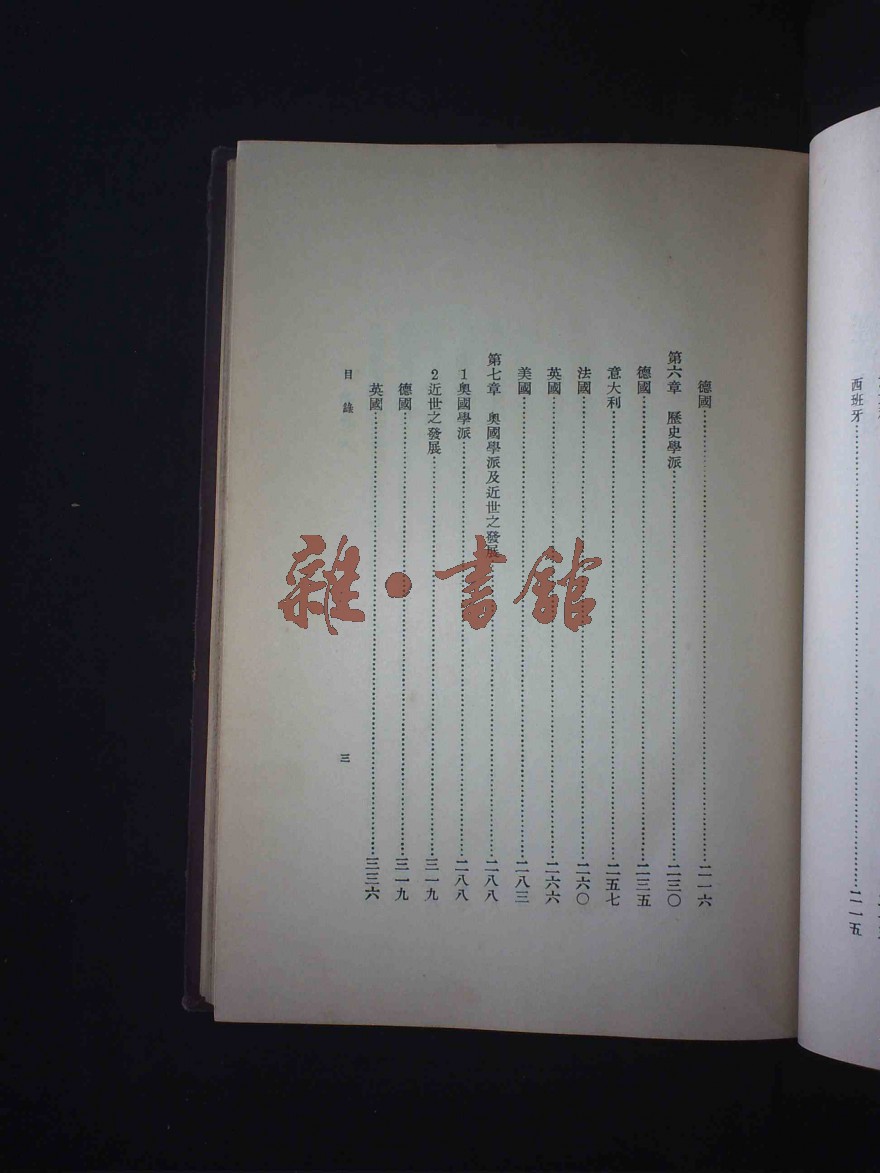 西班牙……二一五
德國……二一六
第六章　歷史學派……二三〇
德國……二三五
意大利……二五七
法國……二六〇
英國……二六六
美國……二八三
第七章　奧國學派及近世之發展……二八八
1奧國學派……二八八
2近世之發展……三一九
德國……三一九
英國……三三六
目錄
三
雜・書館